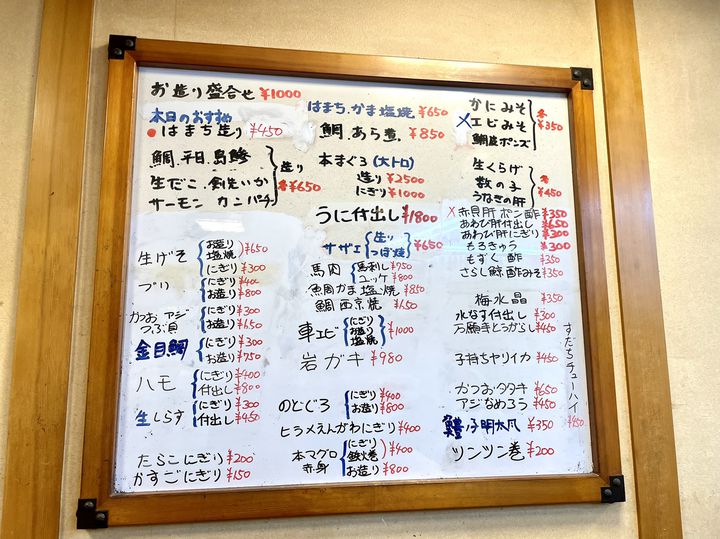 お造り盛合せ ¥1000
本日のおすすめ
はまち造り ¥450
鯛.平目.島鯵
生だこ.剣先いか
サーモン カンパチ
造り
各¥650
生げそ
お造り
塩焼
¥650
にぎり ¥300
ブリ
にぎり ¥400
お造り ¥800
かつお アジ
つぶ貝
にぎり ¥300
お造り ¥650
金目鯛
にぎり ¥300
お造り ¥750
ハモ
にぎり ¥400
付出し ¥800
生しらす
にぎり ¥300
付出し ¥450
たらこにぎり ¥200
かすごにぎり ¥150
はまち.かま塩焼 ¥650
鯛.あら煮. ¥850
本まぐろ (大トロ)
造り ¥2500
にぎり ¥1000
うに付出し ¥1800
サザエ
造り
つぼ焼
¥650
馬肉
馬刺し ¥950
ユッケ ¥800
魚鯛かま塩焼 ¥850
鯛西京焼 ¥650
車エビ
にぎり
お造り
塩焼
¥1000
岩ガキ ¥980
のどぐろ
にぎり ¥400
お造り ¥800
ヒラメえんがわにぎり ¥400
本マグロ
赤身
にぎり
鉄火巻
¥400
お造り ¥800
かにみそ
×エビみそ
鯛皮ポンズ
各
¥350
生くらげ
数の子
うなぎの肝
各
¥450
×赤貝肝ポン酢 ¥350
あわび肝付出し ¥650
あわび肝にぎり ¥300
もろきゅう ¥300
もずく酢 ¥350
さらし鯨酢みそ ¥350
梅水晶 ¥350
水なす付出し ¥300
万願寺とうがらし ¥450
子持ちヤリイカ ¥450
かつおタタキ ¥650
アジなめろう ¥450
¥350
ツンツン巻 ¥200
すだちチューハイ
¥350